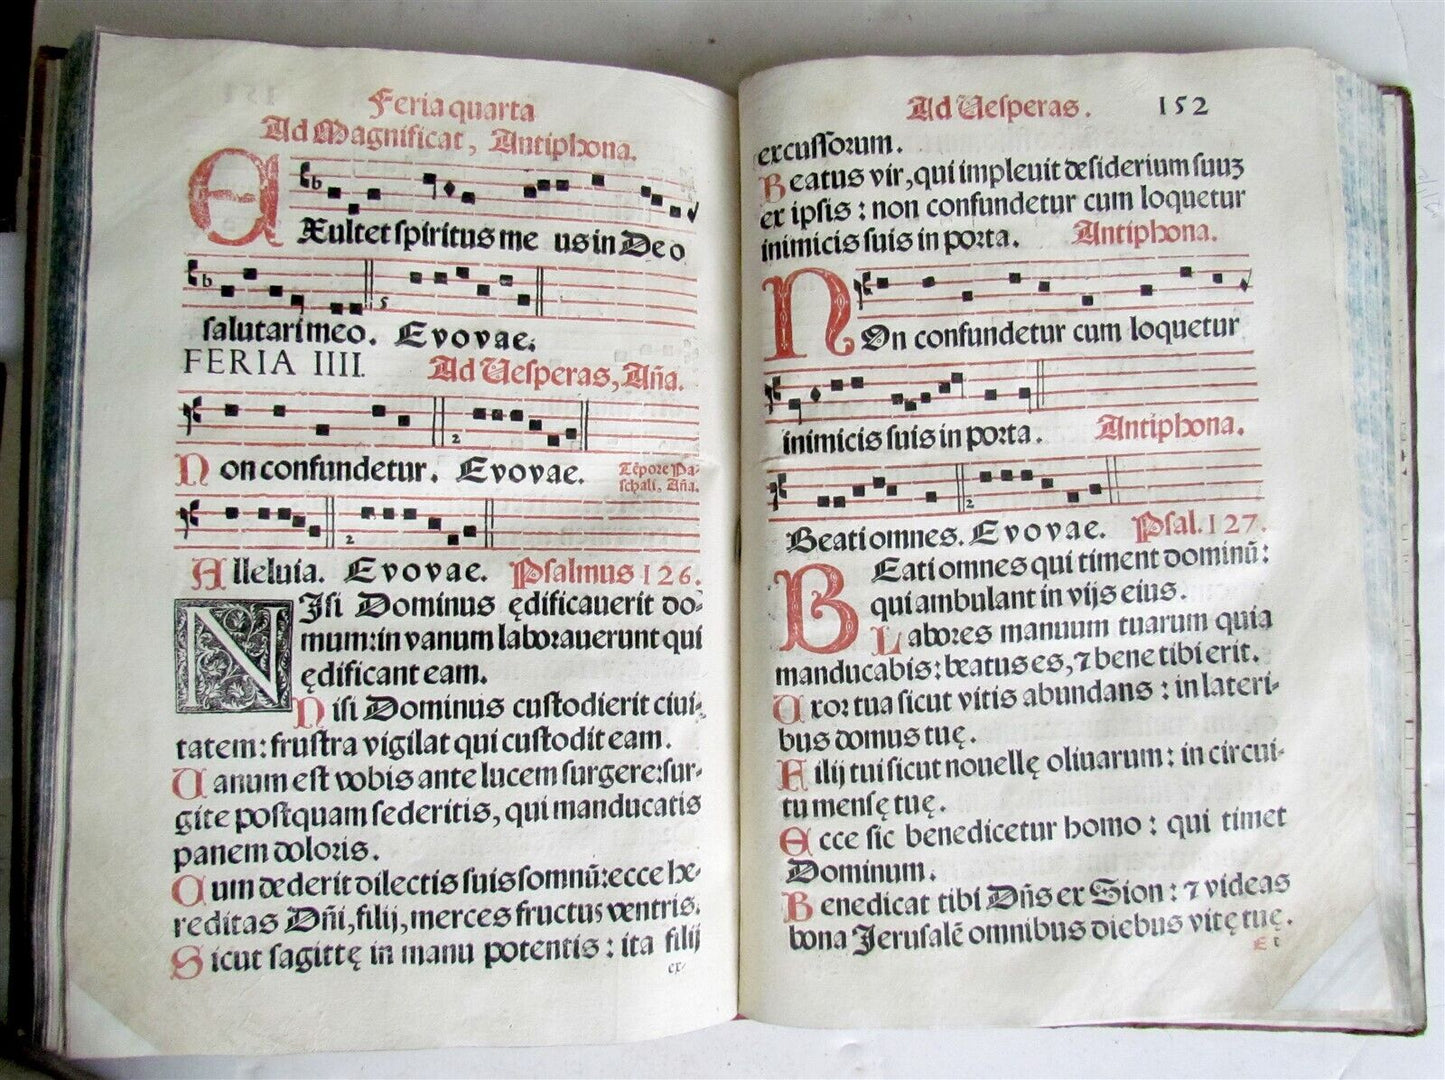 Feria quarta
Ad Magnificat, Antiphona.
EXultet spiritus me us in De o
salutari meo. Evovae.
FERIA IIII. Ad Vesperas, Aña.
Non confundetur. Evovae. Tẽpore Pa-
schali, Aña.
Alleluia. Evovae. Psalmus 126.
NIsi Dominus ędificauerit do-
mum: in vanum laborauerunt qui
ędificant eam.
Nisi Dominus custodierit ciui-
tatem: frustra vigilat qui custodit eam.
Vanum est vobis ante lucem surgere: sur-
gite postquam sederitis, qui manducatis
panem doloris.
Cum dederit dilectis suis somnũ: ecce he-
reditas Dñi, filij, merces fructus ventris.
Sicut sagittę in manu potentis: ita filij
ex-
Ad Vesperas. 152
excussorum.
Beatus vir, qui impleuit desiderium suuʒ
ex ipsis: non confundetur cum loquetur
inimicis suis in porta. Antiphona.
NOn confundetur cum loquetur
inimicis suis in porta. Antiphona.
Beati omnes. Evovae. Psal. 127.
BEati omnes qui timent dominũ:
qui ambulant in vijs eius.
Labores manuum tuarum quia
manducabis: beatus es, ⁊ bene tibi erit.
Vxor tua sicut vitis abundans: in lateri-
bus domus tuę.
Filij tui sicut nouellę oliuarum: in circui-
tu mensę tuę.
Ecce sic benedicetur homo: qui timet
Dominum.
Benedicat tibi Dñs ex Sion: ⁊ videas
bona Jerusalẽ omnibus diebus vitę tuę.
Et